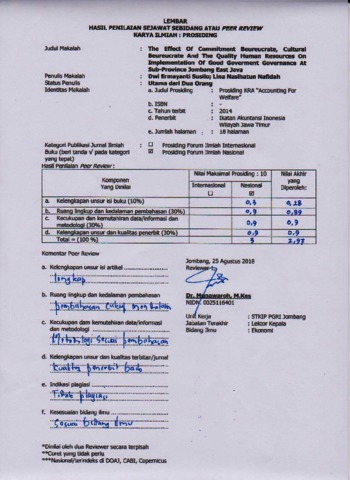 LEMBAR
HASIL PENILAIAN SEJAWAT SEBIDANG ATAU PEER REVIEW
KARYA ILMIAH : PROSIDING
Judul Makalah : The Effect Of Commitment Beureucrate, Cultural
Beureucrate And The Quality Human Resources On
Implementation Of Good Goverment Governance At
Sub-Province Jombang East Java
Penulis Makalah : Dwi Ermayanti Susilo; Lina Nasihatun Nafidah
Status Penulis : Utama dari Dua Orang
Identitas Makalah : a. Judul Prosiding : Prosiding KRA "Accounting For
Welfare"
b. ISBN : -
c. Tahun terbit : 2014
d. Penerbit : Ikatan Akuntansi Inonesia
Wilayah Jawa Timur
e. Jumlah halaman : 18 halaman
Kategori Publikasi Jurnal Ilmiah : ☐ Prosiding Forum Ilmiah Internasional
Buku (beri tanda √ pada kategori ☑ Prosiding Forum Ilmiah Nasional
yang tepat)
Hasil Penilaian Peer Review :
Komponen Yang Dinilai
Nilai Maksimal Prosiding : 10
Internasional ☐ Nasional ☑
Nilai Akhir yang Diperoleh:
a. Kelengkapan unsur isi buku (10%) 0,3 0,28
b. Ruang lingkup dan kedalaman pembahasan (30%) 0,9 0,89
c. Kecukupan dan kemutahiran data/informasi dan
metodologi (30%) 0,9 0,9
d. Kelengkapan unsur dan kualitas penerbit (30%) 0,9 0,9
Total = (100 %) 3 2,97
Komentar Peer Review
Jombang, 25 Agustus 2018
Reviewer 1
a. Kelengkapan unsur isi artikel
lengkap
b. Ruang lingkup dan kedalaman pembahasan
pembahasan cukup mendalam
Dr. Munawaroh, M.Kes
NIDN 0025116401
Unit Kerja : STKIP PGRI Jombang
Jabatan Terakhir : Lektor Kepala
Bidang Ilmu : Ekonomi
c. Kecukupan dam kemutahiran data/informasi
dan metodologi
Metodologi sesuai pembahasan
d. Kelengkapan unsur dan kualitas terbitan/jurnal
kualitas penerbit baik
e. Indikasi plagiasi
Tidak plagiasi
f. Kesesuaian bidang ilmu
sesuai bidang ilmu
*Dinilai oleh dua Reviewer secara terpisah
**Coret yang tidak perlu
***Nasional/terindeks di DOAJ, CABI, Copernicus